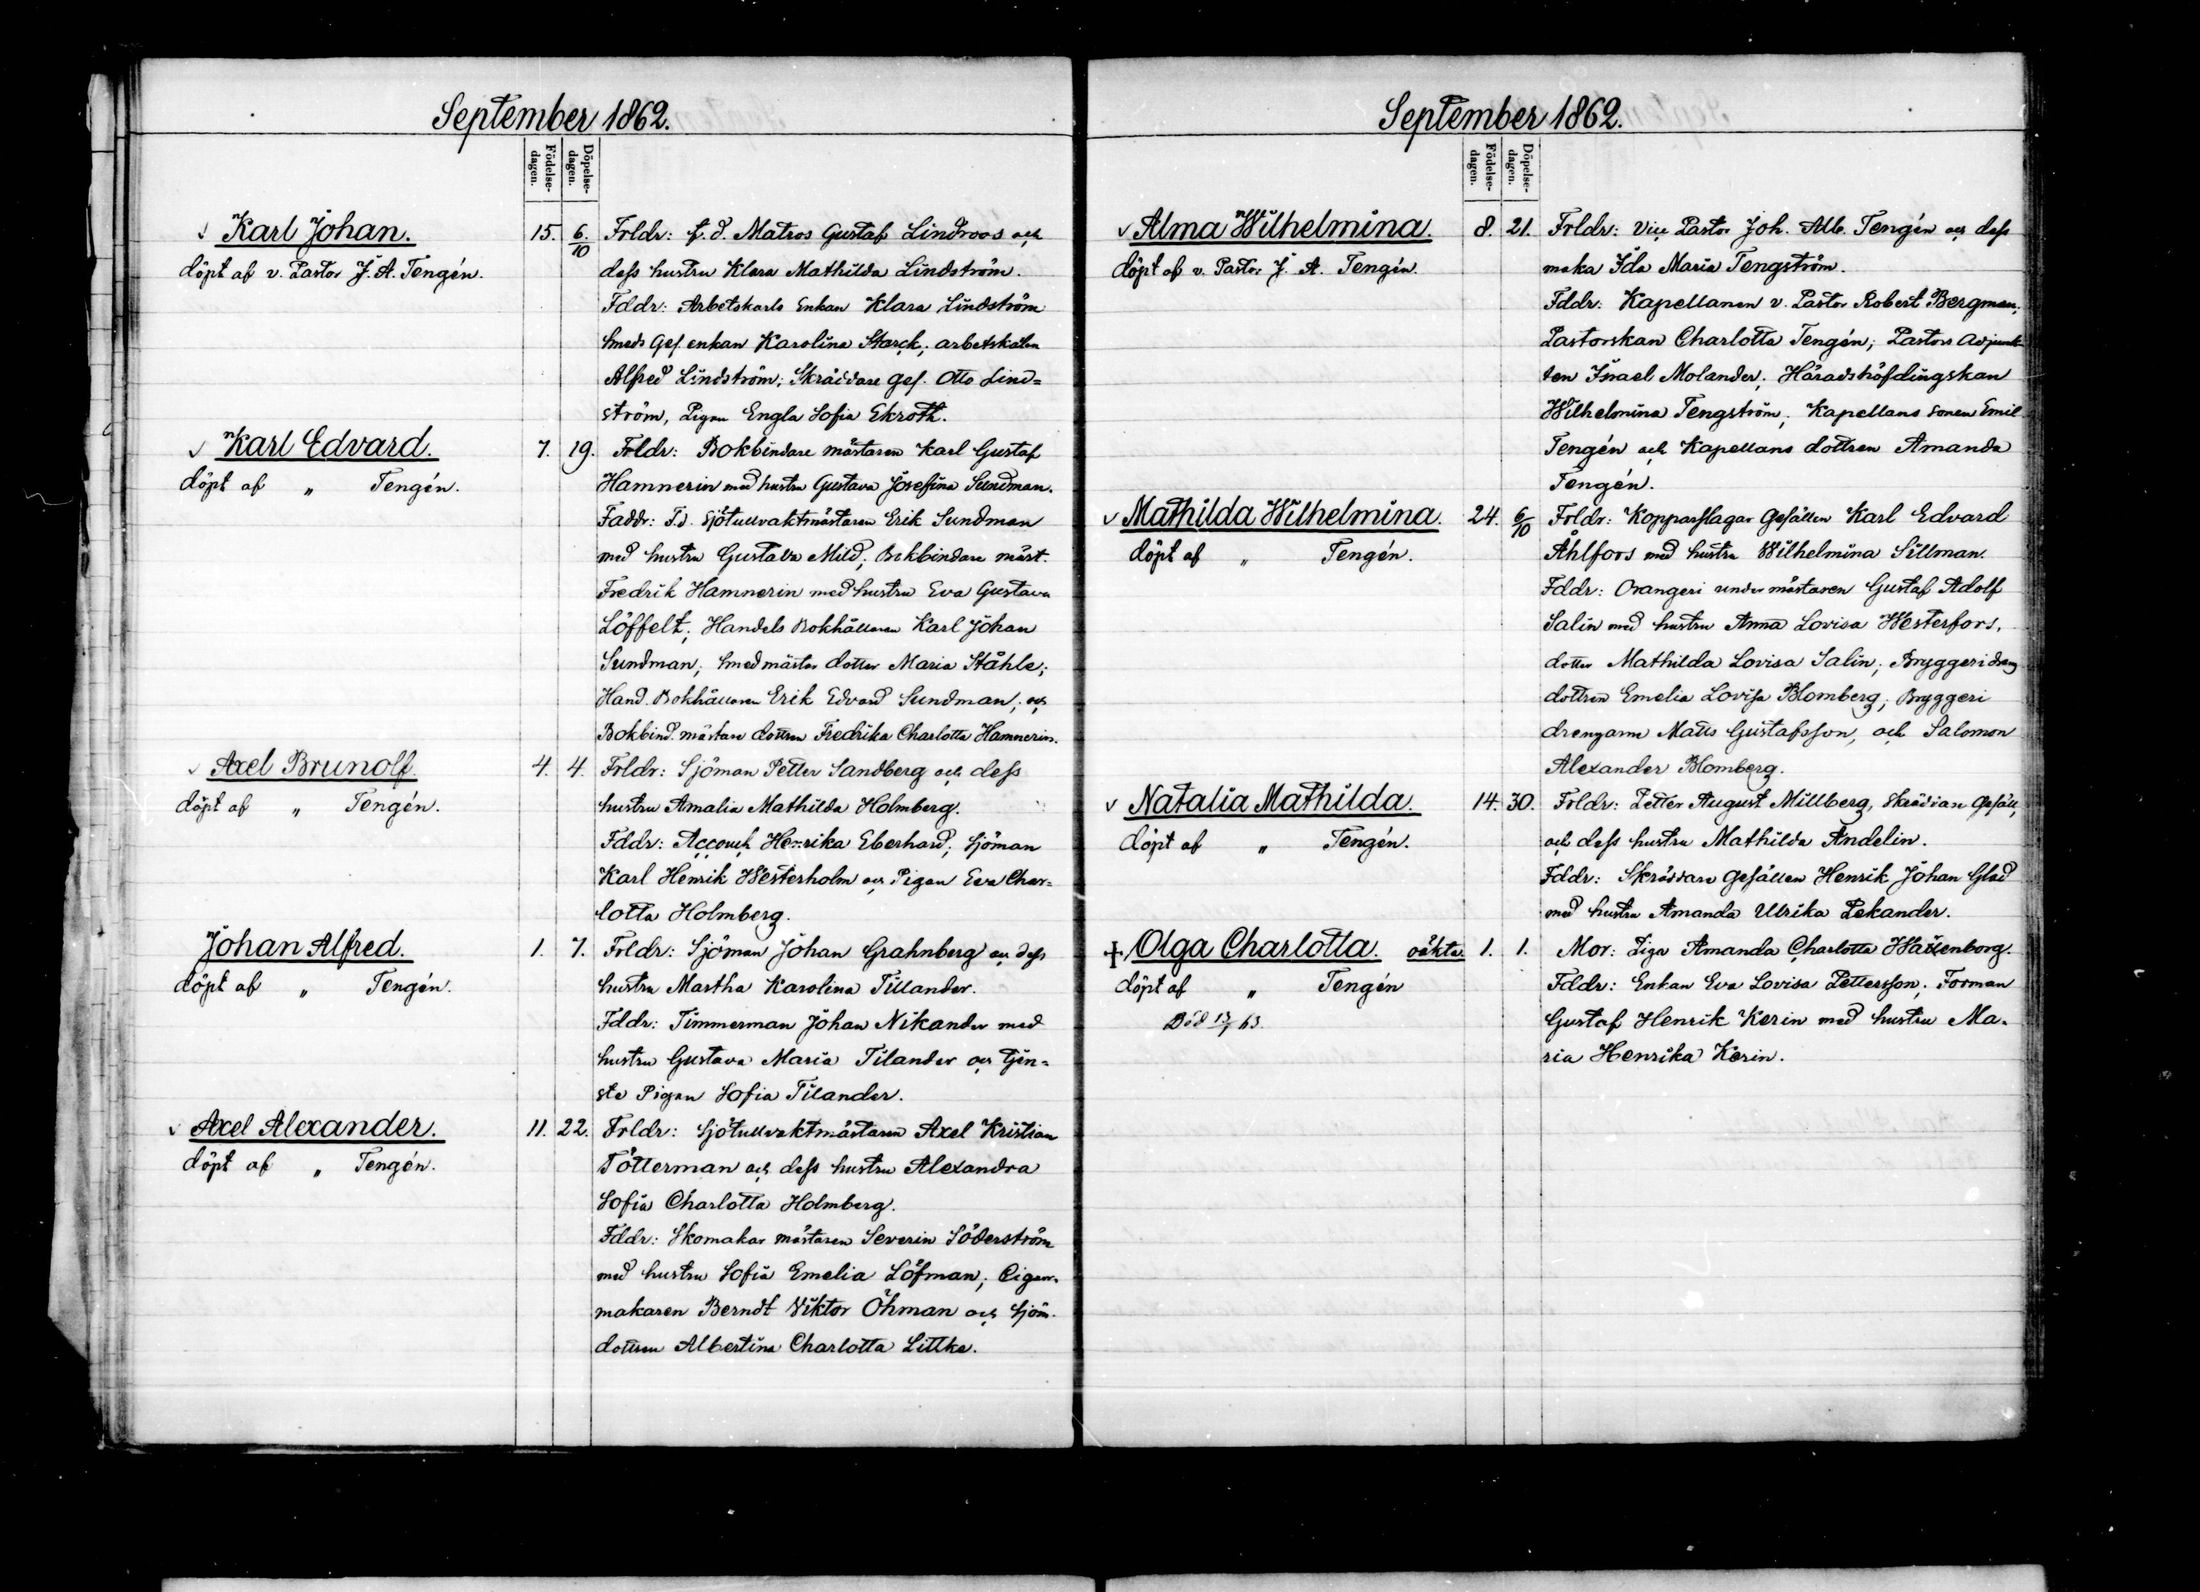 September 1862.
Födelse-dagen. Döpelse-dagen.
Karl Johan. 15. 6/10 Frldr: f.d. Matros Gustaf Lindroos och
döpt af v. Pastor J. A. Tengén. dess hustru Klara Mathilda Lindström.
Fddr: Arbetskarls Enkan Klara Lindström
Smeds Ges. enkan Karolina Starck; arbetskarlen
Alfred Lindström; Skräddare Ges. Otto Lind=
ström, Pigan Engla Sofia Ekroth.
Karl Edvard. 7. 19. Frldr: Bokbindare mästaren Karl Gustaf
döpt af „ Tengén. Hamnerin med hustru Gustava Josefina Sundman.
Faddr: F.d. Sjötullvaktmästaren Erik Sundman
med hustru Gustava Mild; Bokbindare mäst.
Fredrik Hamnerin med hustru Eva Gustava
Löffelt; Handels Bokhållaren Karl Johan
Sundman; Smedmästar dotter Maria Ståhle;
Hand. Bokhållaren Erik Edvard Sundman; och
Bokbind. mästare dottren Fredrika Charlotta Hamnerin.
Axel Brunolf. 4. 4. Frldr: Sjöman Petter Sandberg och dess
döpt af „ Tengén. hustru Amalia Mathilda Holmberg.
Fddr: Accouch Henrika Eberhard; Sjöman
Karl Henrik Westerholm och Pigan Eva Char=
lotta Holmberg.
Johan Alfred. 1. 7. Frldr: Sjöman Johan Grahnberg och dess
döpt af „ Tengén. hustru Martha Karolina Tillander.
Fddr: Timmerman Johan Nikander med
hustru Gustava Maria Tilander och Tjen=
ste Pigan Sofia Tilander.
Axel Alexander. 11. 22. Frldr: Sjötullvaktmästaren Axel Kristian
döpt af „ Tengén. Tötterman och dess hustru Alexandra
Sofia Charlotta Holmberg.
Fddr: Skomakar mästaren Severin Söderström
med hustru Sofia Emelia Löfman; Cigarr=
makaren Berndt Viktor Öhman och Sjöm.
dottren Albertina Charlotta Littke.
September 1862.
Födelse-dagen. Döpelse-dagen.
Alma Wilhelmina. 8. 21. Frldr: Vice Pastor Joh. Alb. Tengén och dess
döpt af v. Pastor J. A. Tengén. maka Ida Maria Tengström.
Fddr: Kapellanen v. Pastor Robert Bergman;
Pastorskan Charlotta Tengén; Pastors Adjunk=
ten Israel Molander; Häradshöfdingskan
Wilhelmina Tengström; Kapellans sonen Emil
Tengén och Kapellans dottren Amanda
Tengén.
Mathilda Wilhelmina. 24. 6/10 Frldr: Kopparslagar Gesällen Karl Edvard
döpt af „ Tengén. Åhlfors med hustru Wilhelmina Sillman.
Fddr: Orangeri under mästaren Gustaf Adolf
Salin med hustru Anna Lovisa Westerfors,
dotter Mathilda Lovisa Salin; Bryggeri dreng
dottren Emelia Lovisa Blomberg; Bryggeri
drengarne Matts Gustafsson, och Salomon
Alexander Blomberg.
Natalia Mathilda. 14. 30. Frldr: Petter August Millberg, Skräddare Gesäll,
döpt af „ Tengén. och dess hustru Mathilda Andelin.
Fddr: Skräddare Gesällen Henrik Johan Glad
med hustru Amanda Ulrika Lekander.
Olga Charlotta. oäkta. 1. 1. Mor: Piga Amanda Charlotta Wattenborg.
döpt af „ Tengén Fddr: Enkan Eva Lovisa Pettersson; Forman
Död 13/1 63. Gustaf Henrik Kerin med hustru Ma=
ria Henrika Kerin.